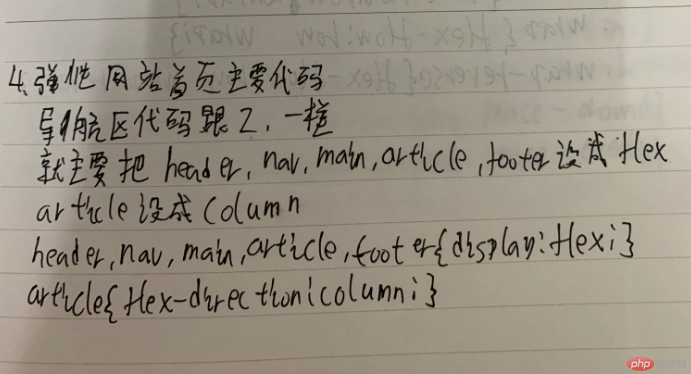 4、弹性网站首页主要代码
导航区代码跟2、一样
就主要把header, nav, main, article, footer设成flex
article设成column
header, nav, main, article, footer{display:flex;}
article{flex-direction:column;}
php